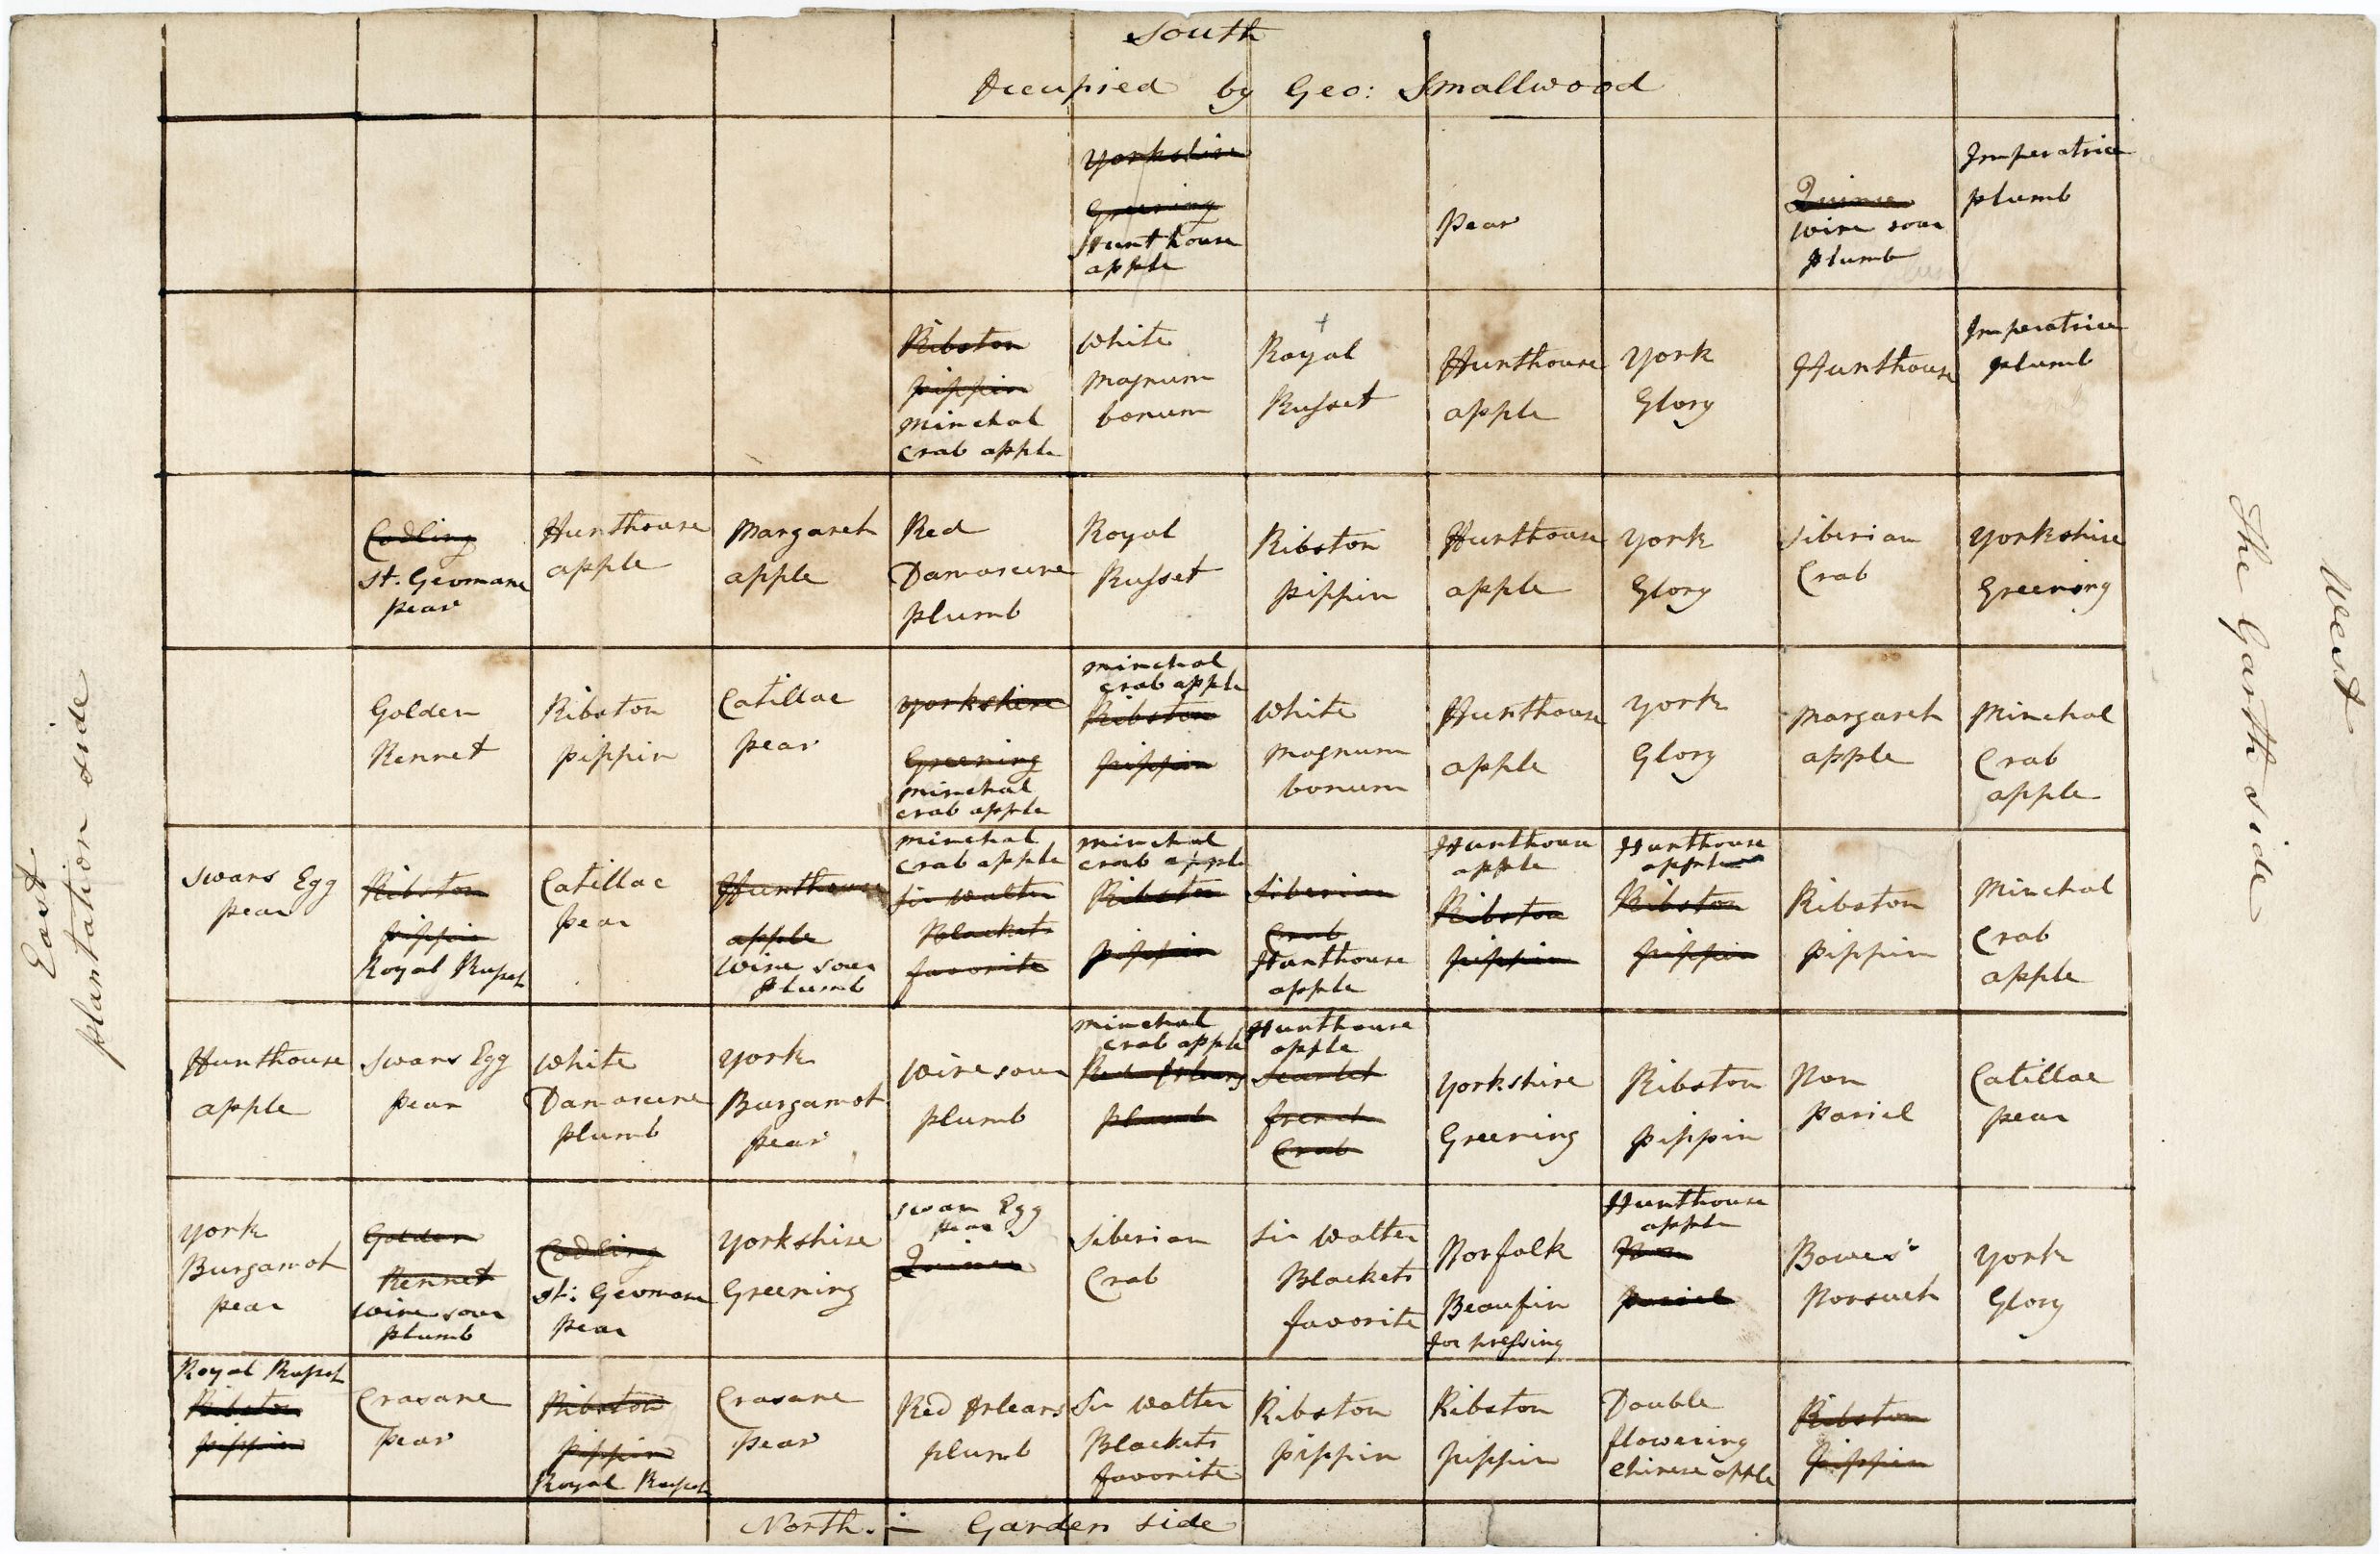 South
Occupied by Geo: Smallwood
Yorkshire
Greening
Hunthouse
apple
Pear
Quince
Wine sour
Plumb
Imperatrice
plumb
Ribston
pippin
Minchal
Crab apple
White
Magnum
bonum
+
Royal
Russet
Hunthouse
apple
York
Glory
Hunthouse
Imperatrice
plumb
Codling
St. Geomane
pear
Hunthouse
apple
Margaret
apple
Red
Damascene
plumb
Royal
Russet
Ribston
pippin
Hunthouse
apple
York
Glory
Siberian
Crab
Yorkshire
Greening
Golden
Rennet
Ribston
pippin
Catillac
pear
Yorkshire
Greening
Minchal
crab apple
Minchal
crab apple
Ribston
pippin
White
Magnum
bonum
Hunthouse
apple
York
Glory
Margaret
apple
Minchal
Crab
apple
Swans Egg
pear
Ribston
pippin
Royal Russet
Catillac
Pear
Hunthouse
apple
Wine sour
Plumb
Minchal
Crab apple
Sir Walter
Blackets
favorite
Minchal
crab apple
Ribston
pippin
Siberian
Crab
Hunthouse
apple
Hunthouse
apple
Ribston
pippin
Hunthouse
apple
Ribston
pippin
Ribston
pippin
Minchal
Crab
apple
Hunthouse
apple
Swans Egg
Pear
White
Damascene
plumb
York
Burgamot
pear
Wine sour
plumb
Minchal
crab apple
Red Orleans
plumb
Hunthouse
apple
Scarlet
french
Crab
Yorkshire
Greening
Ribston
pippin
Non
Pariel
Catillac
pear
York
Burgamot
pear
Golden
Rennet
Wine sour
plumb
Codling
St: Geomane
Pear
Yorkshire
Greening
Swan Egg
Pear
Quince
Siberian
Crab
Sir Walter
Blackets
favorite
Norfolk
Beaufin
for pressing
Hunthouse
apple
Non
Pariel
Bowes'
Nonsuch
York
Glory
Royal Russet
Ribston
pippin
Crasane
Pear
Ribston
pippin
Royal Russet
Crasane
Pear
Red Orleans
plumb
Sir Walter
Blackets
favorite
Ribston
pippin
Ribston
pippin
Double
flowering
Chinese apple
Ribston
Pippin
North. – Garden side
East.
plantation side
West
The Garth side